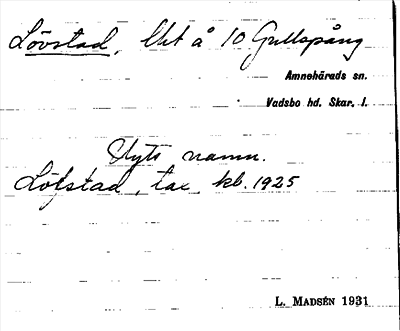 Lövstad, lht å 10 Gullspång
Amnehärads sn.
Vadsbo hd. Skar. l.
Nytt namn.
Löfstad, tax. kb. 1925
L. Madsén 1931